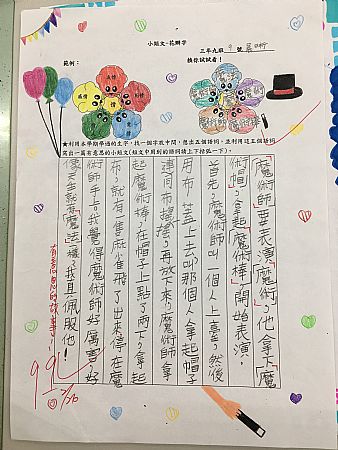 小短文-花辦字
三年九班 9 號
範例:
換你試試看!
★利用本學期學過的生字,找一個字放中間,想出五個語詞,並利用這五個語詞,
寫出一篇有意思的小短文(短文中用到的語詞請上下括弧一下)。
魔術師要表演魔術,他拿上魔
術帽,拿起魔術棒,開始表演,
首先,魔術師叫一個人上臺,然後
用布蓋上去,那個人拿起帽子
連同布搖搖,再放下來,魔術師拿
起魔術棒,在帽子上點了兩下,拿起
布,就有一隻麻雀飛了出來,停在魔
術師手上。我覺得魔術師好厲害,好
像天生就有魔法一樣,我真佩服他!
99